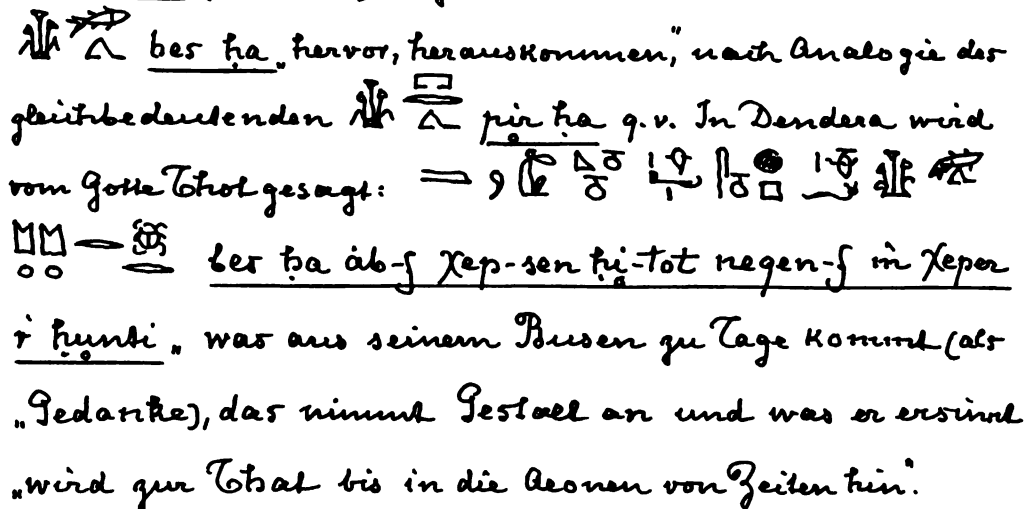 bes ḥa „hervor, herauskommen,“ nach Analogie des
gleichbedeutenden pir ḥa q.v. In Dendera wird
vom Gotte Thot gesagt:
bes ḥa àb-f χep-sen ḥi-tot negen-f m χeper
r ḥunti „was aus seinem Busen zu Tage kommt (als
„Gedanke), das nimmt Gestalt an und was er ersinnt
„wird zur That bis in die Aeonen von Zeiten hin“.